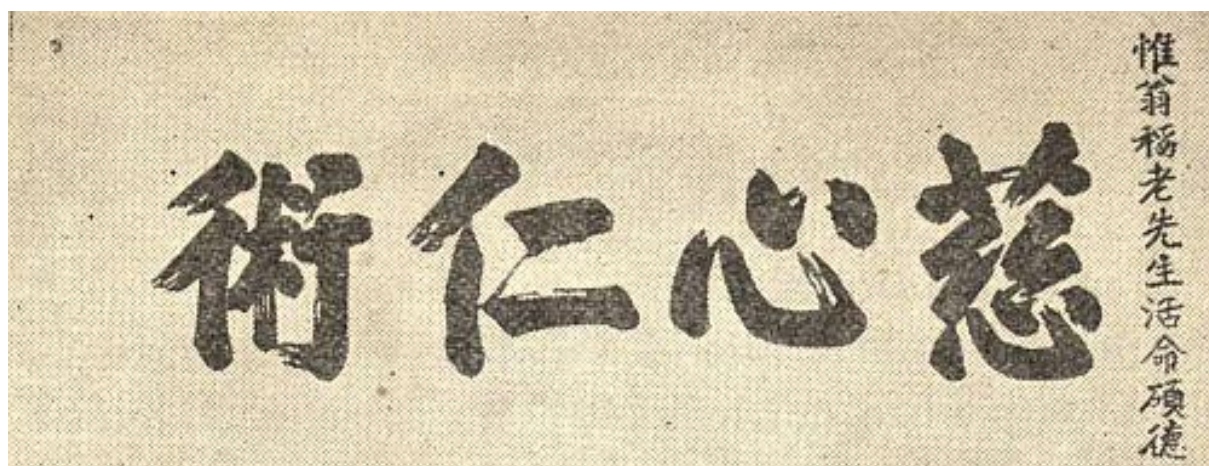 惟翁稲老先生活命碩德
慈心仁術